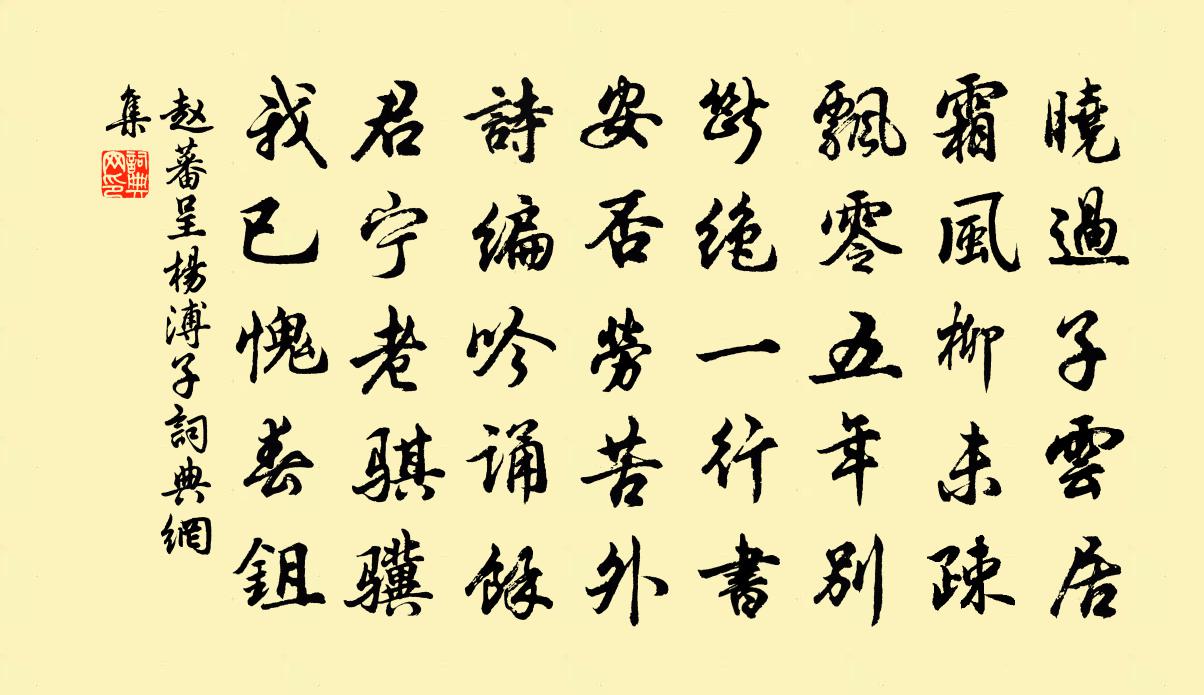 曉過子雲居
霜風柳未疎
飄零五年別
斷绝一行書
安否勞苦外
詩编吟诵餘
君宁老骐骥
我已愧春鉏
赵蕃呈楊溥子詞典網
集
詞典网印